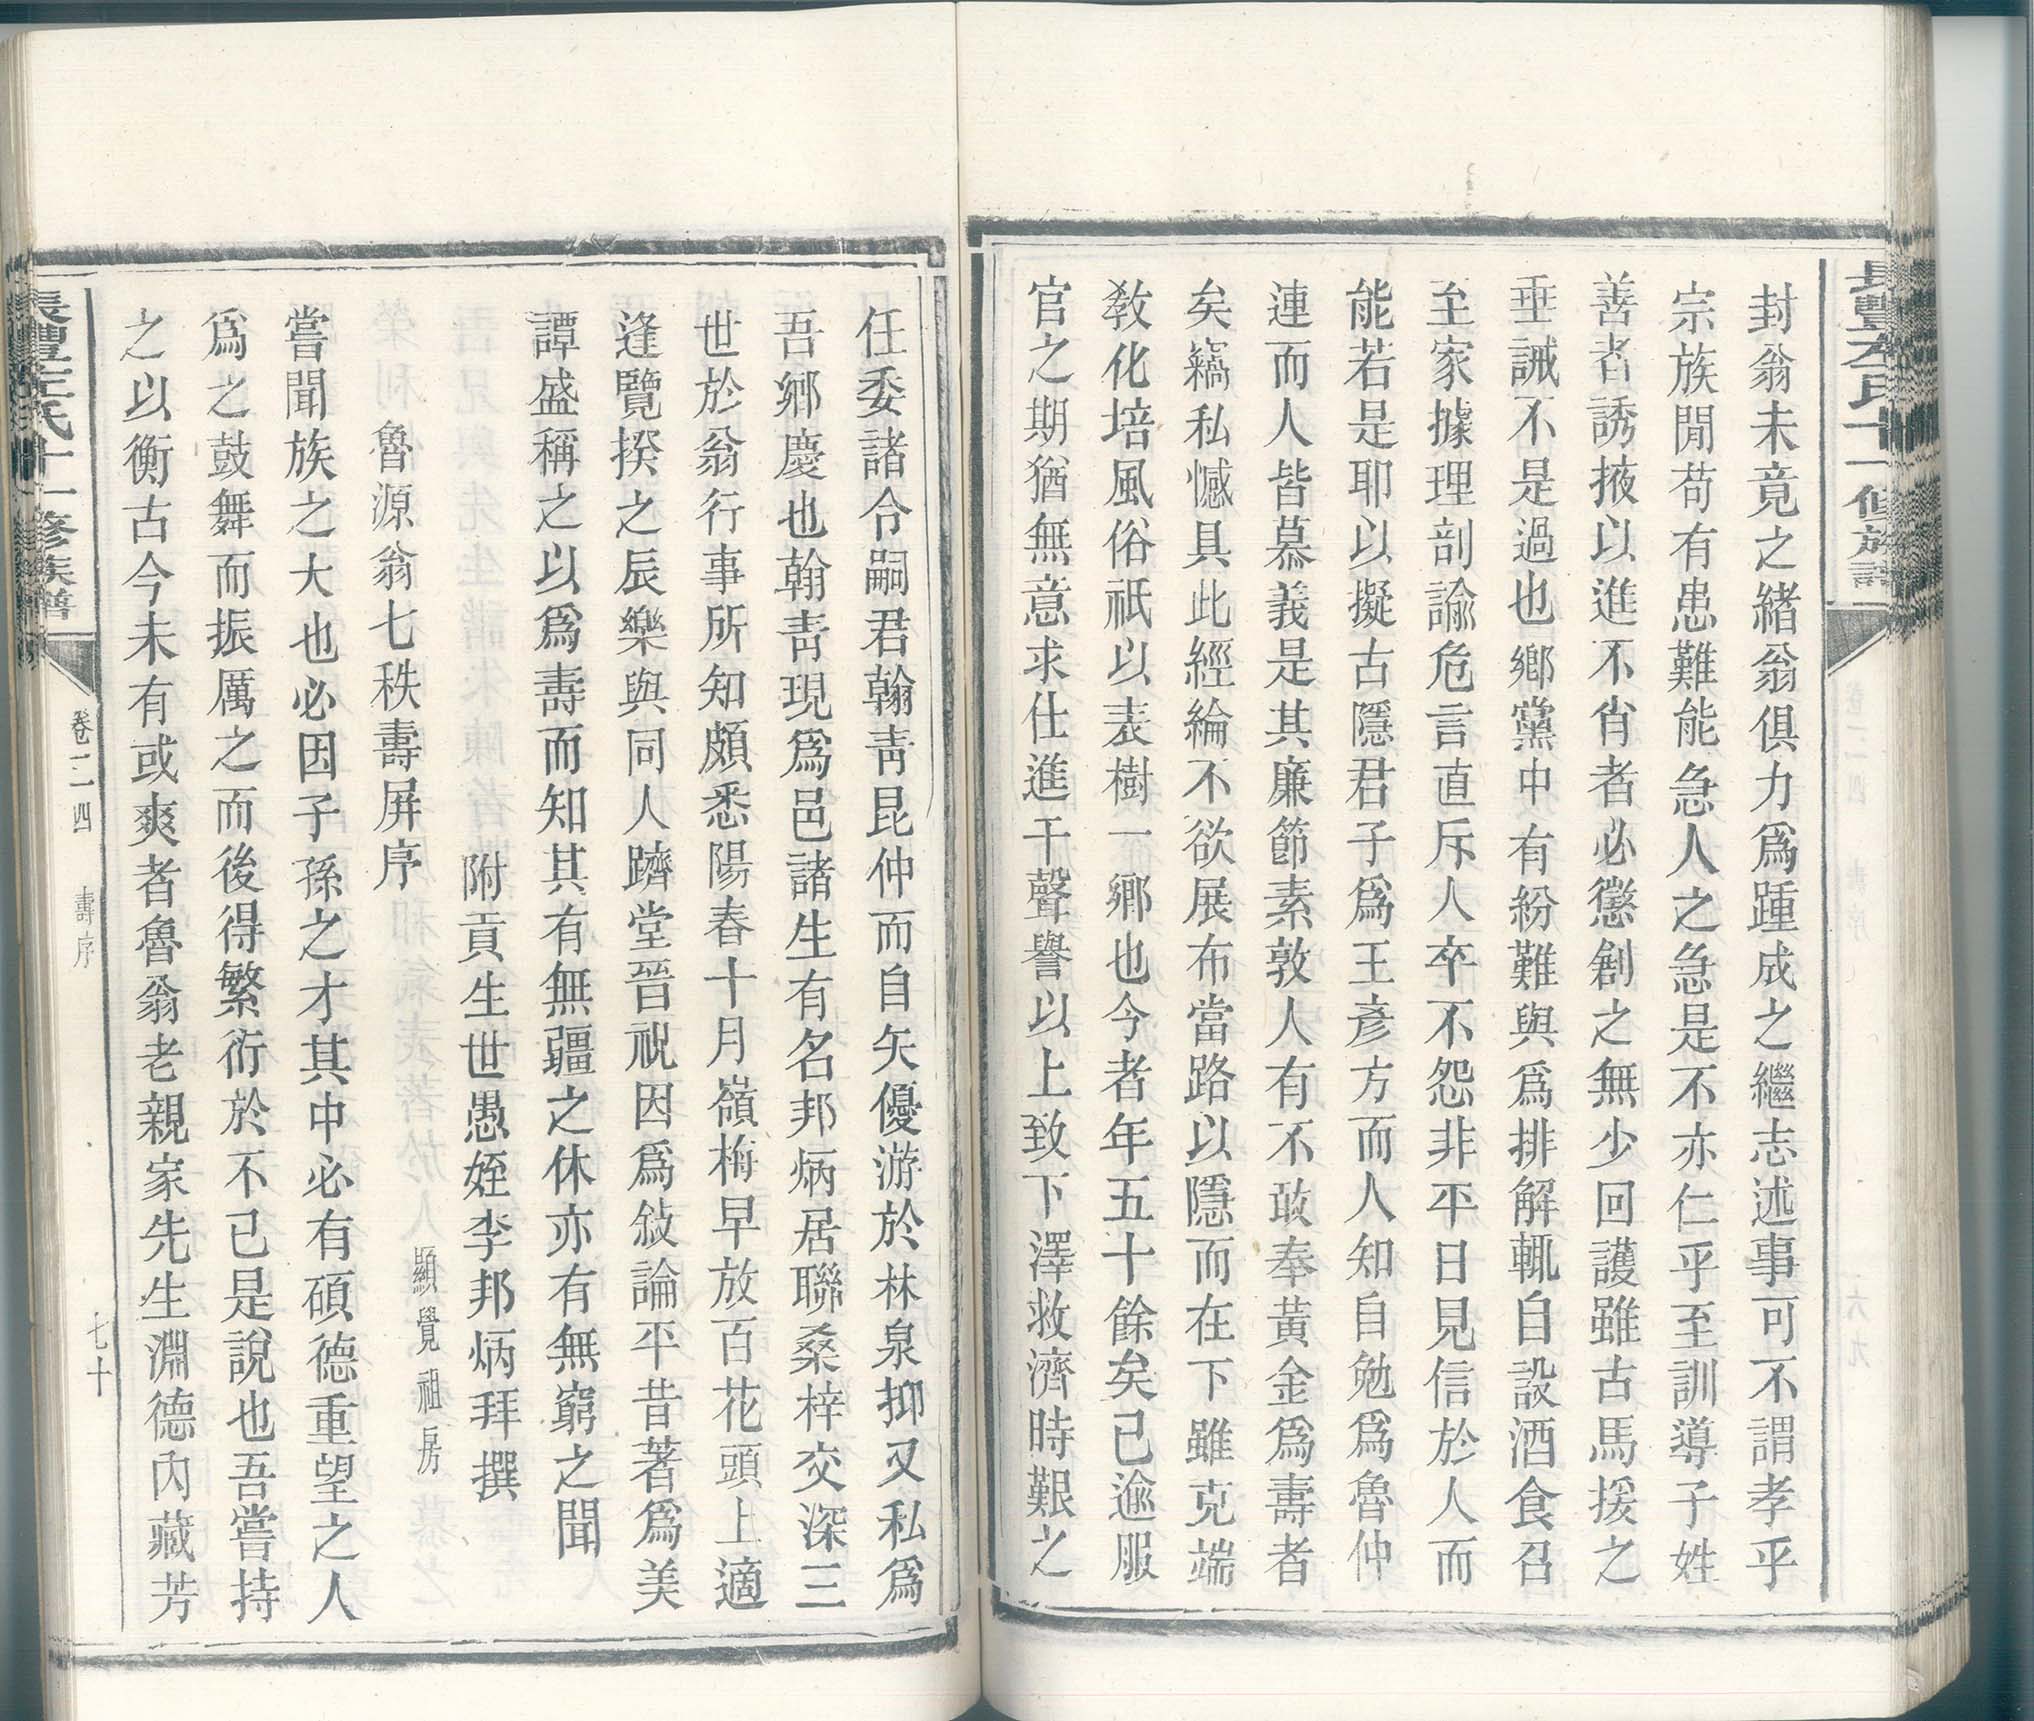 封翁未竟之緒翁俱力爲踵成之繼志述事可不謂孝乎
宗族閒苟有患難能急人之急是不亦仁乎至訓導子姓
善者誘掖以進不肖者必懲創之無少回護雖古馬援之
垂誡不是過也鄉黨中有紛難與爲排解輒自設酒食召
至家據理剖諭危言直斥人卒不怨非平日見信於人而
能若是耶以擬古隱君子爲王彥方而人知自勉爲魯仲
連而人皆慕義是其廉節素敦人有不敢奉黃金爲壽者
矣竊私憾具此經綸不欲展布當路以隱而在下雖克端
敎化培風俗祇以表樹一鄉也今者年五十餘矣已逾服
官之期猶無意求仕進干聲譽以上致下澤救濟時艱之
任委諸令嗣君翰靑昆仲而自矢優游於林泉抑又私爲
吾鄉慶也翰靑現爲邑諸生有名邦炳居聯桑梓交深三
世於翁行事所知頗悉陽春十月嶺梅早放百花頭上適
逢覽揆之辰樂與同人躋堂晉祝因爲敍論平昔著爲美
譚盛稱之以爲壽而知其有無疆之休亦有無窮之聞
附貢生世愚姪李邦炳拜撰
魯源翁七秩壽屏序
顯覺祖房
嘗聞族之大也必因子孫之才其中必有碩德重望之人
爲之鼓舞而振厲之而後得繁衍於不已是說也吾嘗持
之以衡古今未有或爽者魯翁老親家先生淵德內藏芳
卷二四
壽序
七十